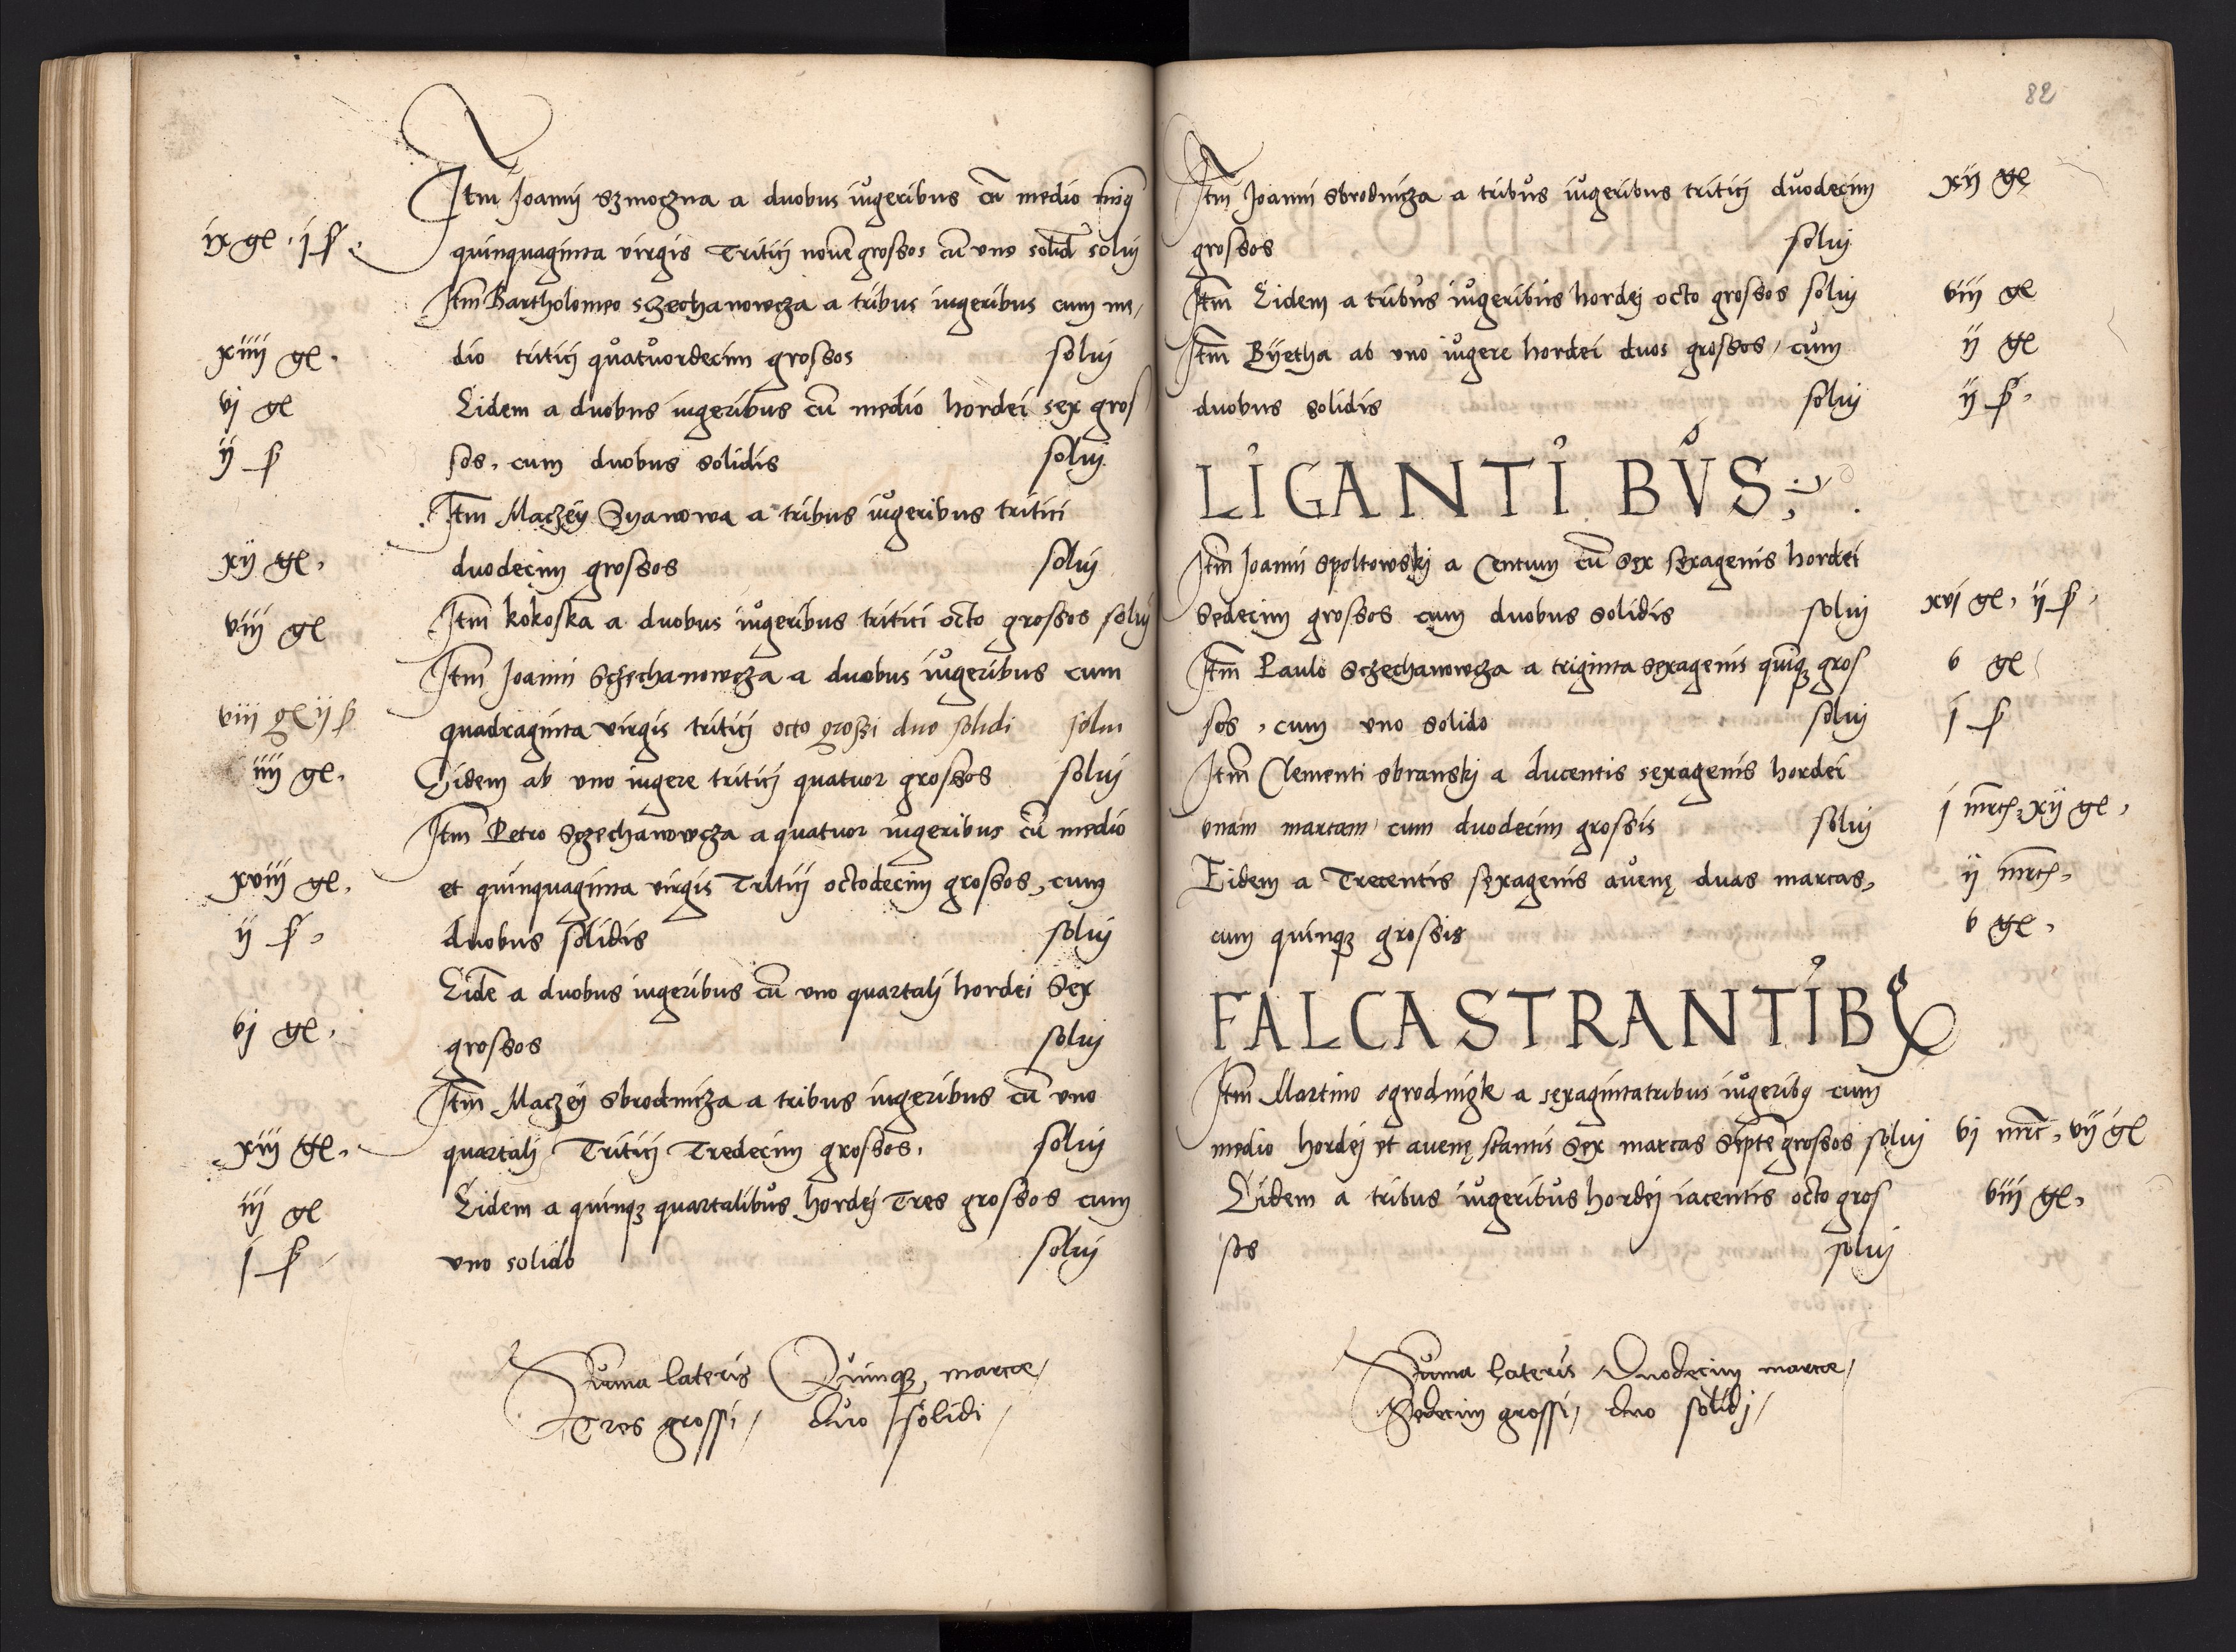 Itm Joanni Szmogzna a duobus iugeribus cū medio minq
ix gl. j ꝑ. quinquaginta virgis Tritici novē grossos cū uno solid solui
Itm Bartholomeo Szechanowcza a tribus iugeribus cum me,
xiiij gl. dio tritici quatuordecim grossos solui
vj gl Eidem a duobus iugeribus cū medio hordei sex gros
ij ꝑ sos, cum duobus solidis solui
Itm Maczey Syanowa a tribus iugeribus tritici
xij gl. duodecim grossos solui
viij gl Itm kokoska a duobus iugeribus tritici octo grossos solui
Itm Joanni Sczechanowcza a duobus iugeribus cum
viij gl ij ꝑ quadraginta virgis tritici octo grossi duo solidi solui
iiij gl. Eidem ab uno iugere tritici quatuor grossos solui
Itm Petro Sczechanowcza a quatuor iugeribus cū medio
xviij gl. et quinquaginta virgis Tritici octodecim grossos, cum
ij ꝑ. duobus solidis solui
Eidē a duobus iugeribus cū uno quartali hordei Sex
vj gl. grossos solui
Itm Maczey Sbrodnicza a tribus iugeribus cū uno
xiij gl. quartali Tritici Tredecim grossos. solui
iij gl Eidem a quinqꝫ quartalibus hordej Tres grossos cum
j ꝑ uno solido solui
Suma lateris Quinqꝫ marcae,
Tres grossi, duo solidi,
82
Itm Joanni Sbrodnicza a tribus iugeribus tritici duodecim xij gl
grossos solui
Itm Eidem a tribus iugeribus hordej octo grossos solui viij gl
Itm Byetha ab uno iugere hordei duos grossos, cum ij gl
duobus solidis solui ij ꝑ.
LIGANTI BUS
Itm Joanni Spoltowskj a Centum cū sex sexagenis hordei
Sedecim grossos cum duobus solidis solui xvj gl, ij ꝑ,
Itm Paulo Sczechanowcza a triginta sexagenis quīqꝫ gros v gl
sos, cum uno solido solui j ꝑ
Itm Clementi sbranskj a ducentis sexagenis hordei
unam marcam cum duodecim grossis solui j mrcꝭ, xij gl.
Eidem a Trecentis sexagenis avenę duas marcas, ij mrcꝭ,
cum quinqꝫ grossis v gl.
FALCASTRANTIBꝰ
Itm Martino ogrodnigk a sexagintatribus iugeribꝰ cum
medio hordej et avenę stantis sex marcas Septē grossos solui vj mrc, vij gl
Eidem a tribus iugeribus hordej iacentis octo gros viij gl,
sos solui
Suma lateris Duodecim marcae,
Sedecim grossi, duo solidj,